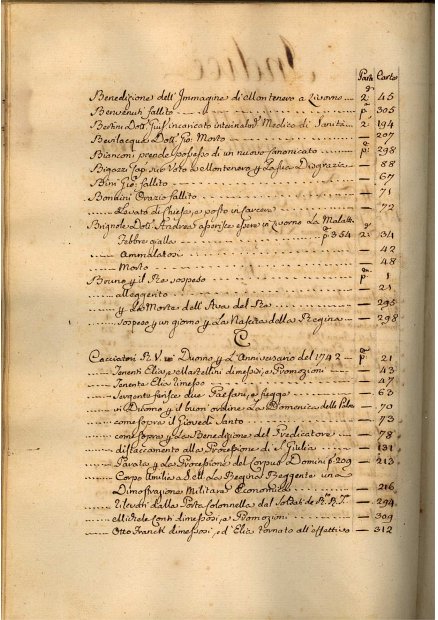 Indice
Parte Carte
Benedizione dell' Immagine di Montenero a Livorno 2 45
Benvenuti fallito p 305
Bertini Dott. incaricato Medico di Sanità 2 194
Bevilacqua Dott. Gio: Morto — 207
Bianconi prende possesso di un nuovo Canonicato p 298
Voto a Montenero — 88
Bini Gio: fallito — 67
Bombini Orazio fallito — 71
Levato di Chiesa, e posto in Carcere — 72
Brignole Dott. Andrea asserisce essere in Livorno La
Febbre gialla p 354 2 34
Ammalatosi — 42
Morto — 48
Bruno p il Re sospeso p 1
alleggerito — 21
p La Morte dell' Ava del Re — 295
Sospeso p un giorno p La Nascita della Regina — 298
C
Cacciatori R. V. Duomo p L'Anniversario del 1742 p 21
Tenenti Elia, e Martellini dimessi, e Promozioni — 43
Tenente Elia dimesso — 47
Sergente ferisce due Paesani, e fugge — 63
Duomo p il buon ordine La Domenica delle Palme — 70
come sopra il Giovedi Santo — 73
come sopra p La Benedizione del Predicatore — 78
distaccamento alla Processione di S. Giulia — 131
Parata p La Processione del Corpus Domini p. 209 — 213
Corpo La Regina Reggente una
Dimostrazione Militare Economica — 216
Rilevati dalla Porta Colonnella dai Soldati — 294
Conti dimessosi, e Promozioni — 309
Otto Franck dimessosi, ed Elia tornato all'effettivo — 312